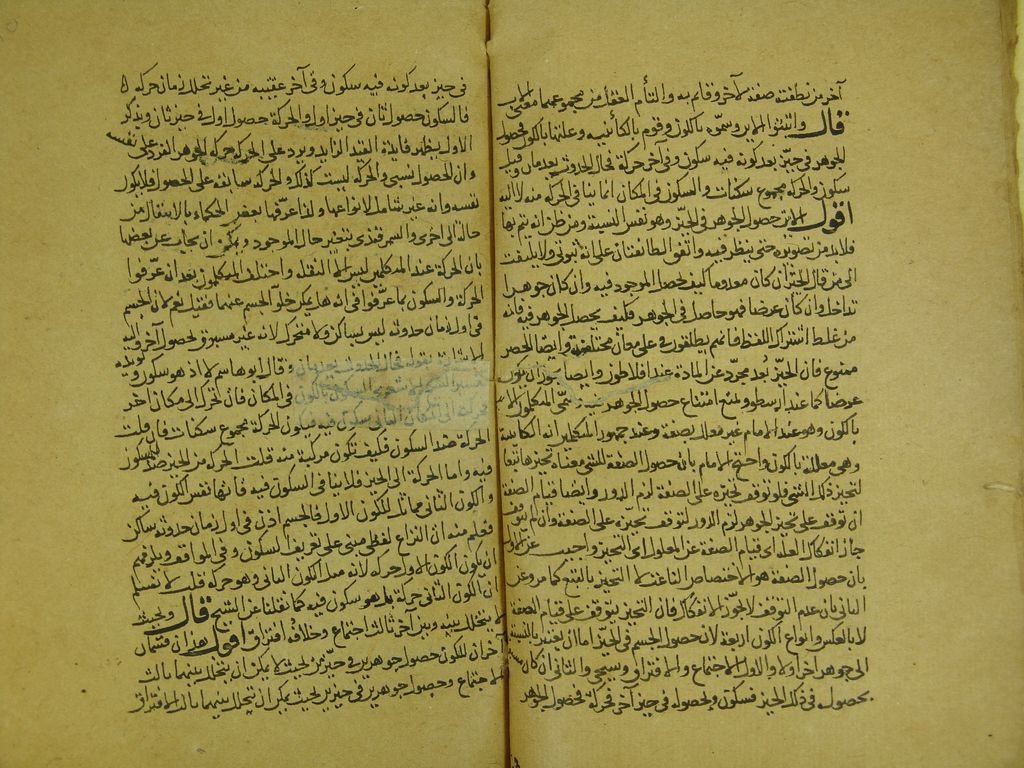 آخر من نطفته صفة لآخر وقائم به والتأم العقل من مجموعهما معنى
قال واثبتوا الاين وسموه بالكون وقوم بالكائنية وعلتها بالكون فحصول
الجوهر في حيز بعد كونه فيه سكون وفي آخر حركة فحال الحدوث بعدمان وقيل
سكون والحركة مجموع سكنات والسكون في المكان انما ينافي الحركة منه لا اليه
اقول الاين حصول الجوهر في الحيز وهو نفس النسبة ومن ظن انه يتم بها
فلا بد من تصويره حتى ينظر فيه واتفق الطائفتان على انه ثبوتي ولا يلتفت
الى من قال الحيز ان كان معدوما كيف يحصل الموجود فيه وان كان جوهرا
تداخل وان كان عرضا فهو حاصل في الجوهر فكيف يحصل الجوهر فيه فانه
من غلط اشتراك اللفظ فانهم يطلقون في على معان مختلفة وايضا الحصر
ممنوع فان الحيز بُعد مجرد عن المادة عند افلاطون وايضا يجوز ان يكون
عرضا كما عند ارسطو ويمنع امتناع حصول الجوهر فيه وسمى المتكلمون الاين
بالكون وهو عند الامام غير معلل بصفة وعند جمهور المتكلمين انه الكائنية
وهي معللة بالكون واحتج الامام بان حصول الصفة للشيء معناه تحيزها تبعا
لتحيز ذلك الشيء فلو توقف تحيزه على الصفة لزم الدور وايضا قيام الصفة
ان توقف على تحيز الجوهر لزم الدور لتوقف تحيزه على الصفة وان لم يتوقف
جاز انفكاك العلة اي قيام الصفة عن المعلول اي التحيز واجيب عن الاول
بان حصول الصفة هو الاختصاص الناعت لا التحيز بالتبع كما مر وعن
الثاني بان عدم التوقف لا يجوز الانفكاك فان التحيز يتوقف على قيام الصفة
لا بالعكس وانواع الكون اربعة لان حصول الجسم في الحيز اما ان يعتبر بالنسبة
الى جوهر آخر او لا والاول الاجتماع والافتراق وسيجي والثاني ان كان
بحصوله في ذلك الحيز فسكون وبحصوله في حيز آخر فحركة فحصول الجوهر
في حيز بعد كونه فيه سكون وفي آخر عقيبه من غير تخلل زمان حركة
فالسكون حصول ثان في حيز اول والحركة حصول اول في حيز ثان وبذكر
الاول يظهر فايدة القيد الزايد ويرد على الحركة حركة الجوهر الفرد على نفسه
وان الحصول نسبي والحركة ليست كذلك والحركة سابقة على الحصول فلا يكون
نفسه وانه غير شامل لانواعها ولذا عرفها بعض الحكماء بالانتقال من
حالة الى اخرى والسر فيه ان يتغير حال الموجود ويمكن ان يجاب عن بعضها
بان الحركة عند المتكلمين ليس الا النقلة واختلف المتكلمون بعد ان عرفوا
الحركة والسكون بما عرفوا في انه هل يمكن خلو الجسم عنهما فقيل نعم لان الجسم
في اول زمان حدوثه ليس بساكن ولا متحرك لانه غير مسبوق بحصول آخر واليه
الاشارة بقوله فحال الحدوث وقال ابو هاشم لا اذ هو سكون
في المكان فان تحرك الى مكان آخر
فيكون الحركة مجموع سكنات فان قلت
الحركة ضد السكون فكيف تكون مركبة منه قلت الحركة من الحيز ضد السكون
فيه واما الحركة الى الحيز فلا ينافي السكون فيه فانها نفس الكون فيه
والكون الثاني مماثل للكون الاول فالجسم اذن في اول زمان حدوثه ساكن
فعلم منه ان النزاع لفظي مبني على تعريف السكون وفي المواقف ويلزمهم
ان يكون الكون الاول حركة لانه مثل الكون الثاني وهو حركة قلت لا نسلم
ان الكون الثاني حركة بل هو سكون فيه كما نقلنا عن الشيخ قال وبحيث
لا يتخلل بينه وبين آخر ثالث اجتماع وخلافه افتراق اقول هذان قسمان
آخران للكون حصول جوهرين في حيزين بحيث لا يمكن ان يتخلل بينهما ثالث
الاجتماع وحصول جوهرين في حيزين بحيث يمكن ان يتخلل بينهما ثالث الافتراق